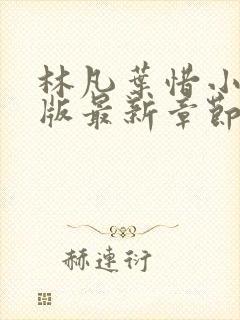 林凡葉惜小
版最新章節
赫連衍